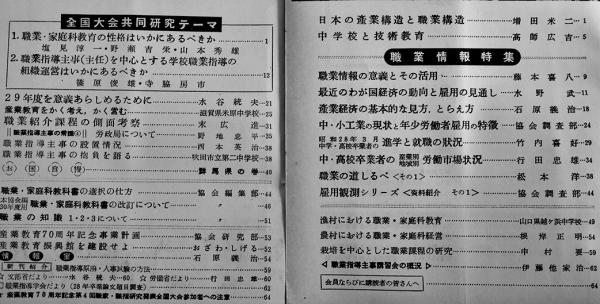 全国大会共同研究テーマ
1. 職業・家庭科教育の性格はいかにあるべきか…1
塩見淳一・野瀬吉栄・山本秀雄
2. 職業指導主事(主任)を中心とする学校職業指導の
組織運営はいかにあるべきか…12
篠原俊雄・寺脇房市
29年度を意義あらしめるために…水谷統夫…21
産業教育をかく考え,かく営む…滋賀県米原中学校…25
職業紹介課程の側面考察…末広進…31
職業指導主事の常識④ 労政局について…野地忠平…35
職業指導主事の設置情況…西本英治…38
職業指導主事の抱負を語る…吹田市立第二中学校…38
お国自慢 群馬県の巻…40
職業・家庭科教科書の選択の仕方…協会編集部…44
本協会編30年度用 職業・家庭科教科書の改訂について…〃…46
職業の知識1・2・3について…〃…51
産業教育70周年記念事業計画…協会研究部…53
産業教育振興館を建設せよ…おざわ・しげる…32
情報室…石原義治…54
新刊紹介 職業指導原論・人事試験の方法…59
☆文部省だより…水谷統夫…60 ☆労働省だより…行田忠雄…62
職業指導学会だより(28年卒業論文題目調査)…63
産業教育70周年記念第4回職家・職指研究協議全国大会参加者への注意…64
日本の産業構造と職業構造…増田米二…1
中学校と技術教育…高師広吉…5
職業情報特集
職業情報の意義とその活用…藤本喜八…9
最近のわが国経済の動向と雇用の見通し…水野武…11
産業経済の基本的な見方,とらえ方…石原義治…18
中・小工業の現状と年少労働者雇用の特徴…協会調査部…24
昭和28年3月中学・高校卒業者の 進学と就職の状況…竹内喜好…29
中・高校卒業者の産業別地域別労働市場状況…行田忠雄…34
職業の道しるべ<その1>…松本洋…38
雇用観測シリーズ<資料紹介 その1>…協会調査部…44
漁村における職業・家庭科教育…山口県越ケ浜中学校…49
農村における職業・家庭科経営…根岸正明…54
栽培を中心とした職業課程の研究…中村要…59
◀職業指導主事講習会の概況▶…伊藤他家治…61
会員ならびに購読者の皆さんへ…64